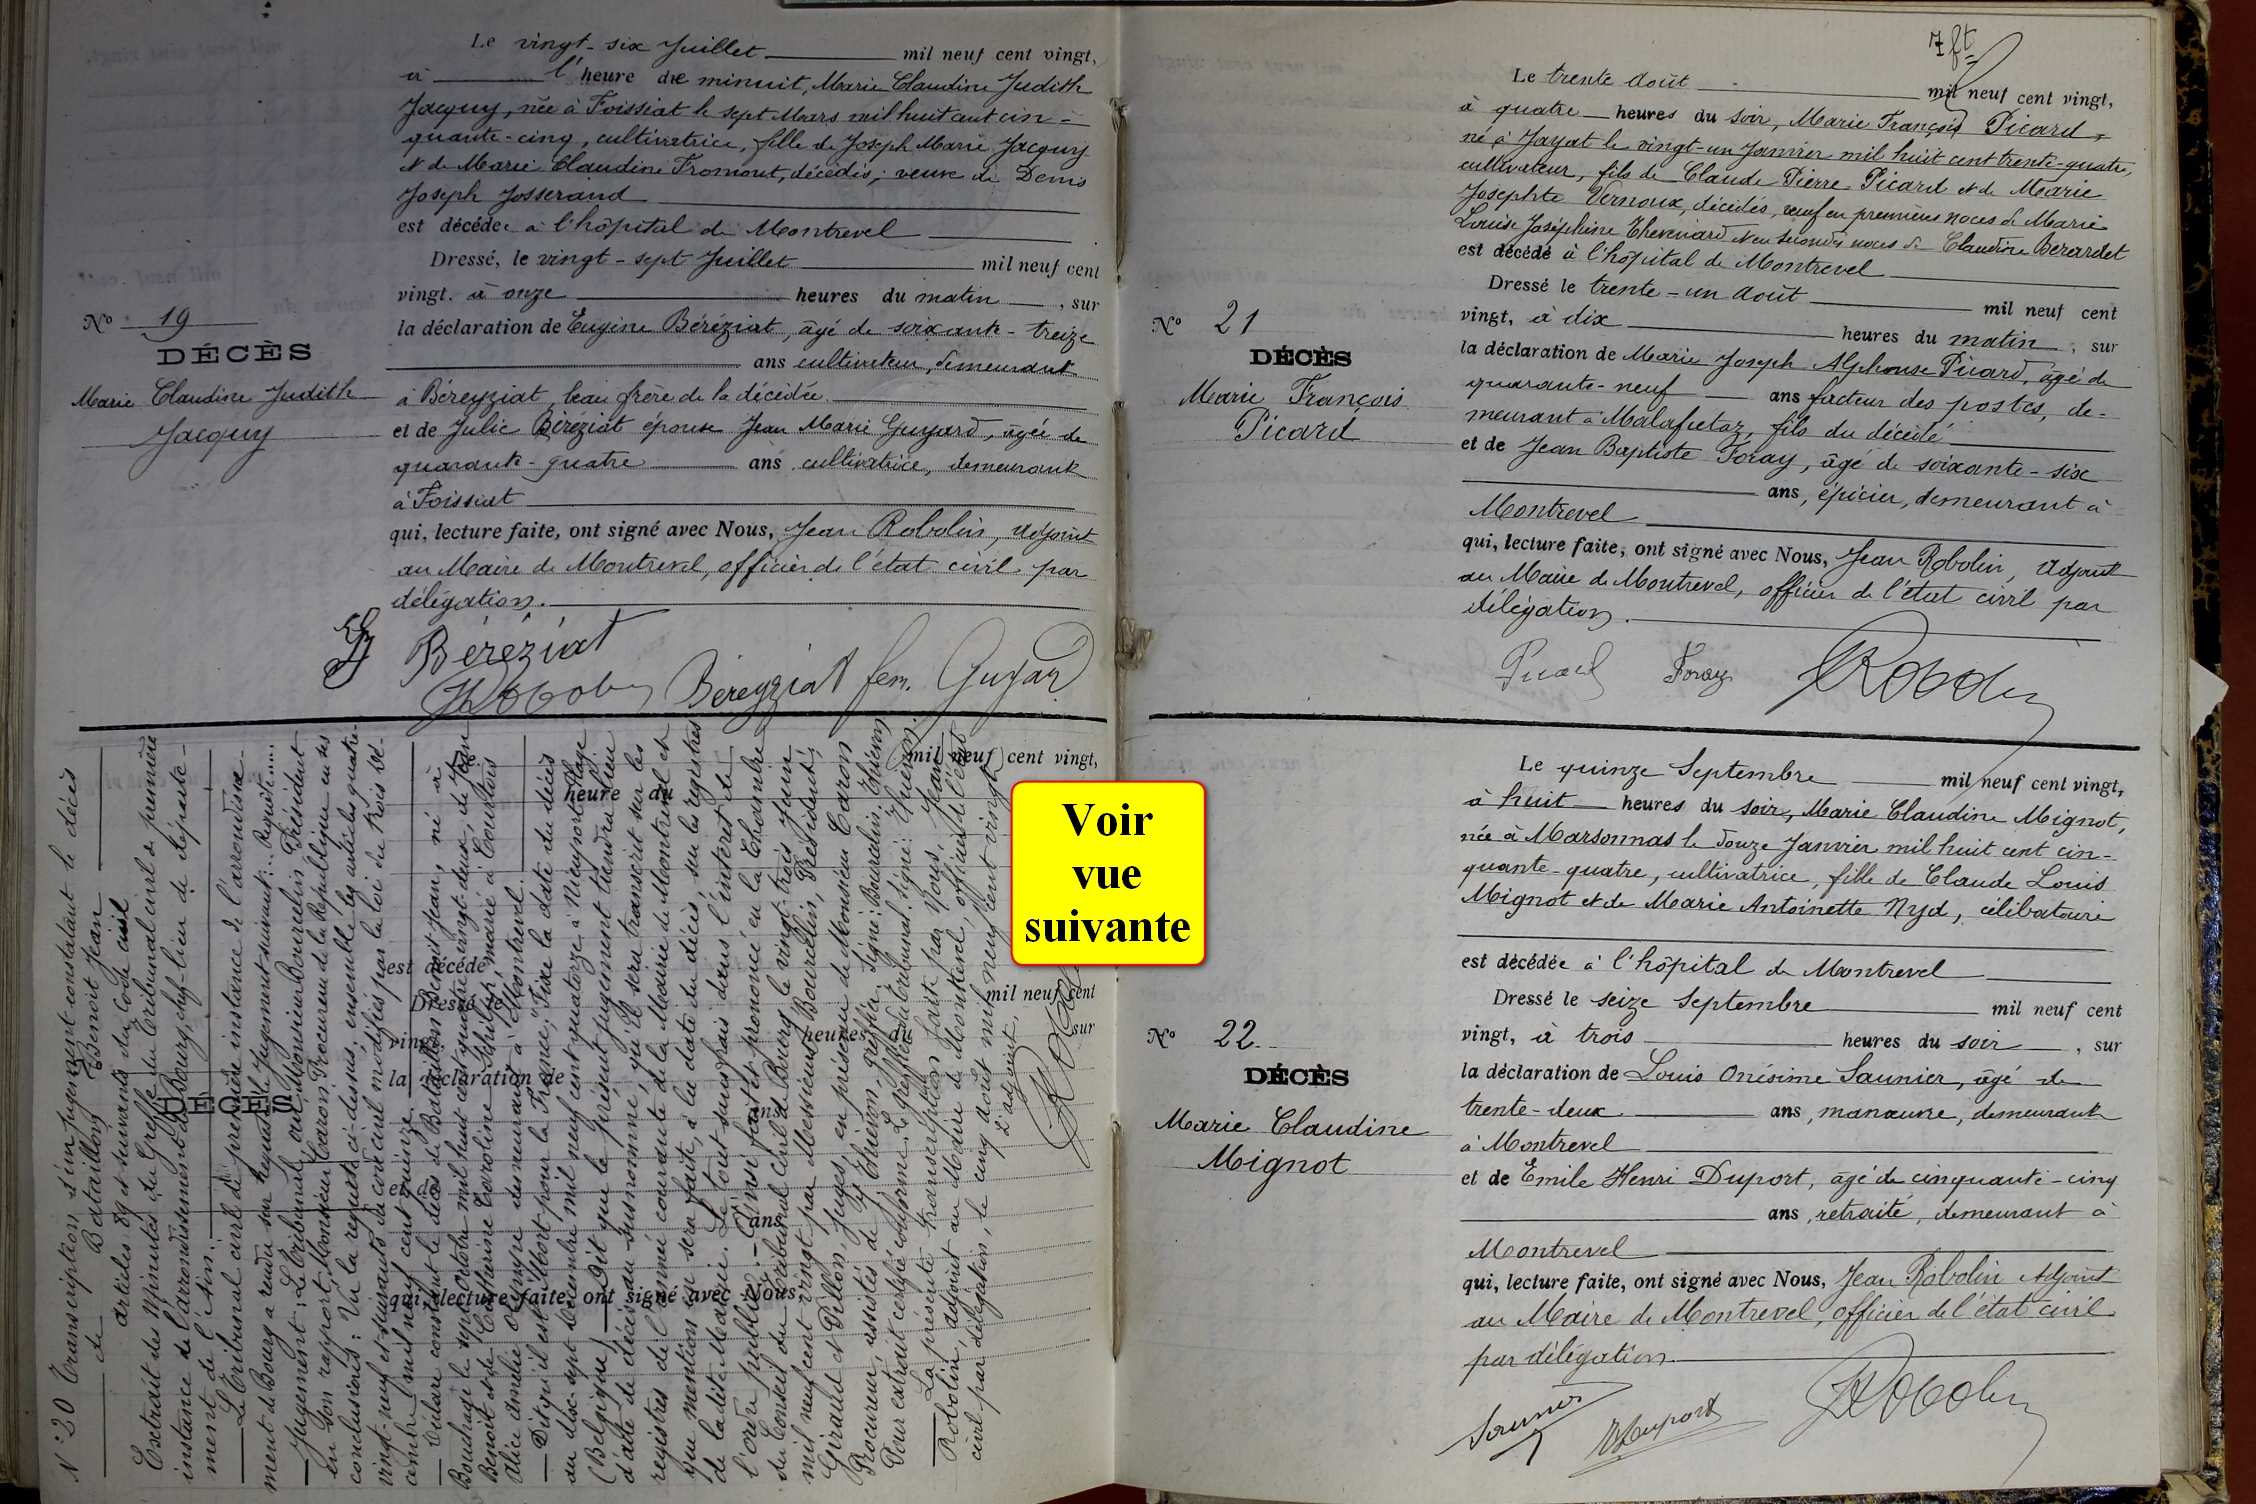 Le vingt-six Juillet mil neuf cent vingt,
à l'heure de minuit, Marie Claudine Judith
Jacquy, née à Foissiat le sept Mars mil huit cent cin-
quante-cinq, cultivatrice, fille de Joseph Marie Jacquy
et de Marie Claudine Fromont, décédés, veuve de Denis
Joseph Josserand
est décédée à l'hôpital de Montrevel
Dressé, le vingt-sept Juillet mil neuf cent
vingt, à onze heures du matin, sur
la déclaration de Eugène Béréziat, âgé de soixante-treize
ans cultivateur, demeurant
à Béreyziat, beau frère de la décédée.
et de Julie Béréziat épouse Jean Marie Guyard, âgée de
quarante-quatre ans cultivatrice, demeurant
à Foissiat
qui, lecture faite, ont signé avec Nous, Jean Robolin, Adjoint
au Maire de Montrevel, officier de l'état civil par
délégation.
Béréziat
JRobolin Béreyziat fem. Guyard
N° 19
DÉCÈS
Marie Claudine Judith
Jacquy
N° 20 Transcription d'un jugement constatant le décès
de Bataillon Benoit Jean
articles 89 et suivants du code civil
Extrait des Minutes du Greffe du Tribunal civil de première
instance de l'arrondissement de Bourg, chef-lieu de départe-
ment de l'Ain.
Le Tribunal civil de première instance de l'arrondisse-
ment de Bourg a rendu sur requête le jugement suivant: Requête....
Jugement: Le Tribunal, ouï Monsieur Bourcelin Président
en son rapport, Monsieur Caron Procureur de la République en ses
conclusions; Vu la requête ci-dessus, ensemble les articles quatre-
vingt-neuf et suivants du code civil modifiés par la loi du trois Dé-
cembre mil neuf cent quinze
Déclare constant le décès de Bataillon Benoit Jean, né à
Bouchage le sept Octobre mil huit cent quatre vingt-deux, de Jean
Benoit et de Catherine Caroline marié à Courtois
Alice Amélie Olympe demeurant à Montrevel.
Dit qu'il est mort pour la France, Fixe la date du décès
au dix-sept Décembre mil neuf cent quatorze à Nieuport-Plage
(Belgique). Dit que le présent jugement tiendra lieu
d'acte de décès au susnommé, qu'il sera transcrit sur les
registres de l'année courante de la Mairie de Montrevel et
que mention en sera faite, à la date du décès, sur les registres
de la dite Mairie. Le tout sans frais dans l'intérêt de
l'ordre public. Ainsi fait et prononcé en la Chambre
du Conseil du Tribunal civil de Bourg le vingt-trois Juin
mil neuf cent vingt par Messieurs Bourcelin, Président,
Giraud et Dillon, Juges, en présence de Monsieur Caron
Procureur, assistés de Me Thiévon, greffier. Signé: Bourcelin. Thiévon
Pour extrait certifié conforme. Le greffier du Tribunal. Signé: Thiévon.
La présente transcription faite par Nous, Jean
Robolin, adjoint au Maire de Montrevel, officier de l'état
civil par délégation, le cinq Août mil neuf cent vingt
L'adjoint,
mil neuf cent vingt,
heure du
est décédé
Dressé le mil neuf cent
vingt, heures du sur
la déclaration de
ans
et de
ans
qui, lecture faite, ont signé avec Nous,
DÉCÈS
Voir
vue
suivante
7 ft
Le trente Août mil neuf cent vingt,
à quatre heures du soir, Marie François Picard,
né à Jayat le vingt-un Janvier mil huit cent trente-quatre,
cultivateur, fils de Claude Pierre Picard et de Marie
Josephte Vernoux, décédés, veuf en premières noces de Marie
Louise Joséphine Thevenard et en secondes noces de Claudine Berardet
est décédé à l'hôpital de Montrevel
Dressé le trente-un Août mil neuf cent
vingt, à dix heures du matin, sur
la déclaration de Marie Joseph Alphonse Picard, âgé de
quarante-neuf ans facteur des postes, de-
meurant à Malafretaz, fils du décédé
et de Jean Baptiste Foray, âgé de soixante-six
ans, épicier, demeurant à
Montrevel
qui, lecture faite, ont signé avec Nous, Jean Robolin, Adjoint
au Maire de Montrevel, officier de l'état civil par
délégation.
Picard Foray JRobolin
N° 21
DÉCÈS
Marie François
Picard
Le quinze Septembre mil neuf cent vingt,
à huit heures du soir, Marie Claudine Mignot,
née à Marsonnas le douze Janvier mil huit cent cin-
quante-quatre, cultivatrice, fille de Claude Louis
Mignot et de Marie Antoinette Nyd, célibataire
est décédée à l'hôpital de Montrevel
Dressé le seize Septembre mil neuf cent
vingt, à trois heures du soir, sur
la déclaration de Louis Onésime Saunier, âgé de
trente-deux ans, manœuvre, demeurant
à Montrevel
et de Emile Henri Duport, âgé de cinquante-cinq
ans, retraité, demeurant à
Montrevel
qui, lecture faite, ont signé avec Nous, Jean Robolin Adjoint
au Maire de Montrevel, officier de l'état civil
par délégation.
Saunier EDuport JRobolin
N° 22
DÉCÈS
Marie Claudine
Mignot